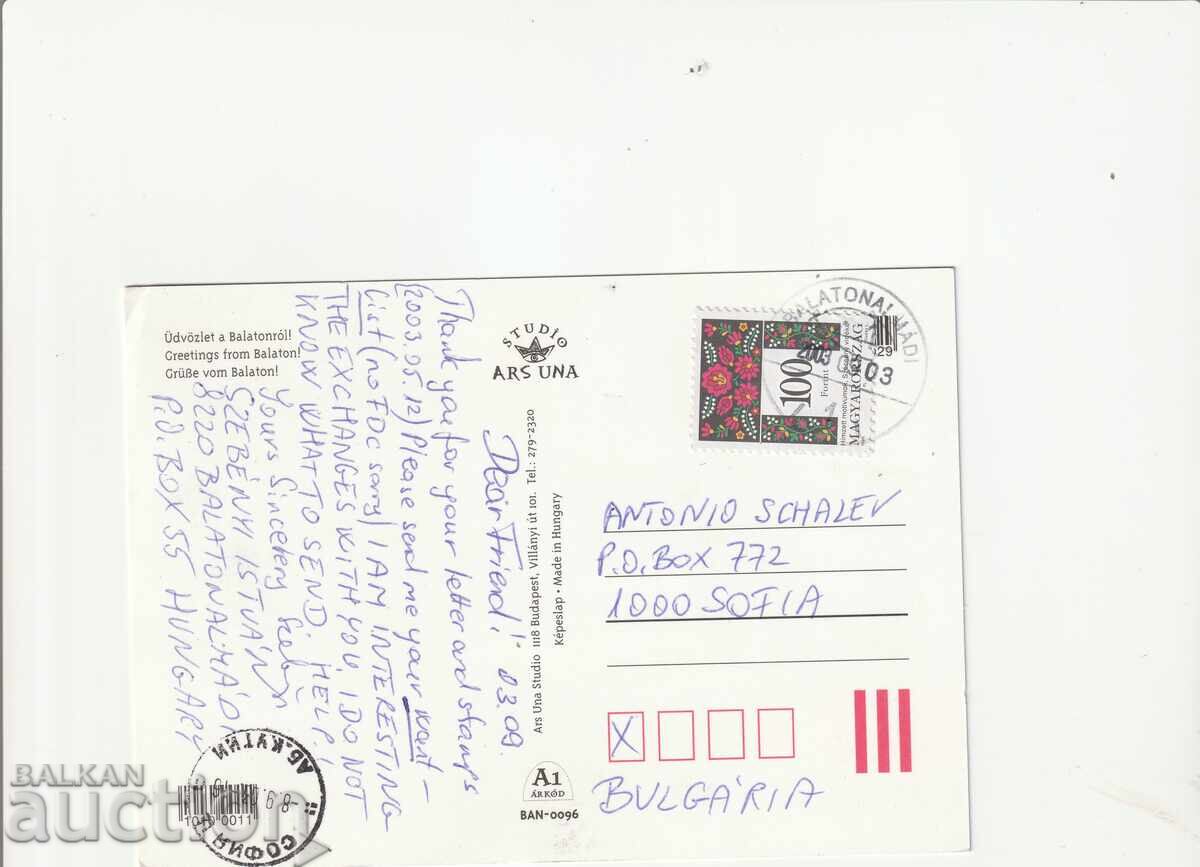 Üdvözlet a Balatonról!
Greetings from Balaton!
Grüße vom Balaton!
Dear Friend! 03.09.
Thank you for your letter and stamps
(2003.05.12) Please send me your want-
list (no FDC sorry) I AM INTERESTING
THE EXCHANGES WITH YOU. I DO NOT
KNOW WHAT TO SEND. HELP!
Yours Sincerely
SZEBÉNYI ISTVÁN
8220 BALATONALMÁDI
P.O. BOX 55 HUNGARY
STUDIO
ARS UNA
Ars Una Studio 1118 Budapest, Villányi út 101. Tel.: 279-2320
Képeslap • Made in Hungary
A1
ÁRKÓD
BAN-0096
BALATONALMÁDI
2003
03
29
100
Forint
MAGYARORSZÁG
ANTONIO SCHALEV
P.O. BOX 772
1000 SOFIA
X
BULGÁRIA
АБ. КУТИИ
СОФИЯ Ц
1010 0011
BALKAN
auction